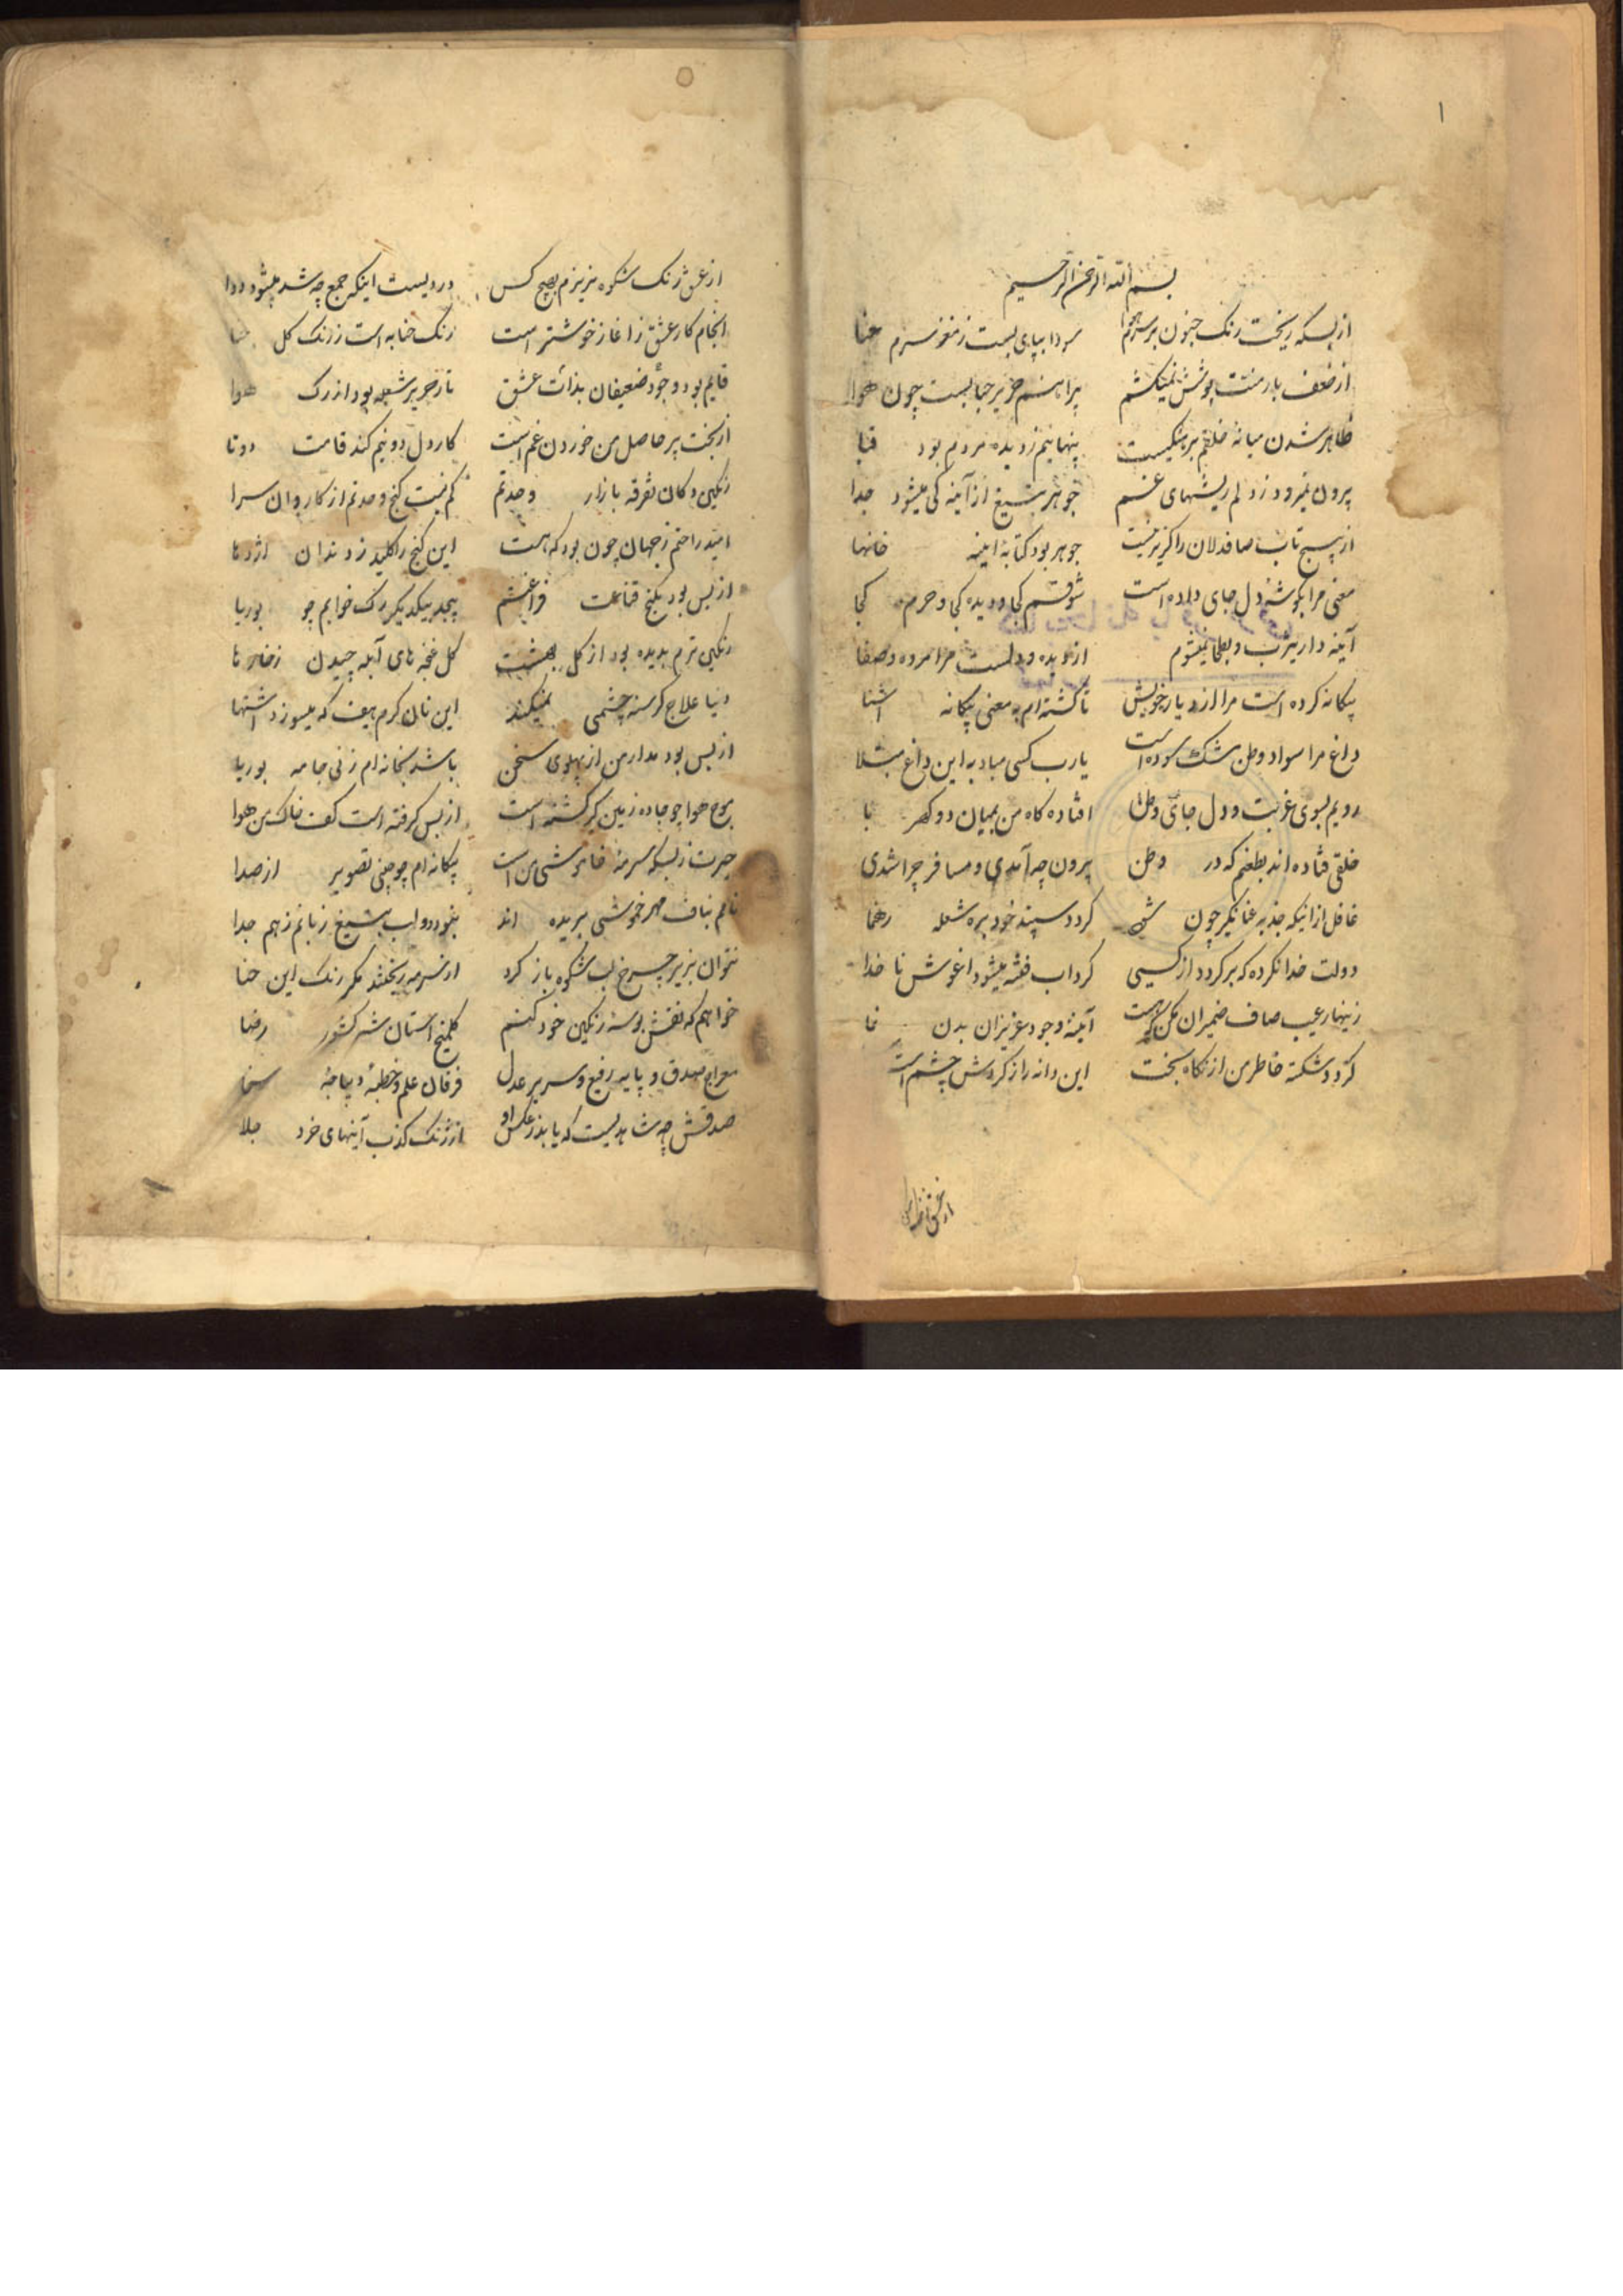 ۱
بسم الله الرحمن الرحیم
از بسکه ریخت رنک جنون بر سرم هوا سودا بپای بست ز مغز سرم حنا
از ضعف بار منت پوشش نمیکشم پیراهنم حریر حبابست چون هوا
ظاهر شدن میانهٔ خلقم برهنکیست پنهانیم ز دیده مردم بود قبا
بیرون نمیرود ز دلم ریشهای غم جوهر بتیغ از آینه کی میشود جدا
از پیچ تاب صافدلان را کزیر نیست جوهر بود کتابهٔ اینه خانها
معنی مرا بکوشهٔ دل جای داده است شوقم کجا و دیده کجا و حرم کجا
آینه دار یثرب و بطحا نمیشوم از دیده و دلست مرا مروه و صفا
بیکانه کرده است مرا از دیار خویش تا کشته ام به معنی بیکانه اشنا
داغ مرا سواد وطن مشک سوده است یارب کسی مباد به این داغ مبتلا
رویم بسوی غربت و دل جای وطن افتاده کاه من بمیان دو کهربا
خلقی فتاده اند بطعنم که در وطن بیرون چه آمدی و مسافر چرا شدی
غافل از اینکه جذبه عنانکیر چون شود کردد سپند خود بره شعله رهنما
دولت خدا نکرده که برکردد از کسی کرداب فتنه میشود اغوش نا خدا
زینهار عیب صاف ضمیران مکن که هست آینهٔ وجود عزیزان بدن نما
کردد شکسته خاطر من از نکاه سخت این دانه را ز کردش چشم است
از عشق
از عشق رنک شکوه نریزم بهیچ کس دردیست اینکه جمع چه شد میشود دوا
انجام کار عشق ز اغاز خوشتر است رنک حنا به است ز رنک کل حنا
قایم بود وجود ضعیفان بذات عشق تار حریر شعله بود از رک هوا
از بخت پر حاصل من خوردن غم است کار دل دو نیم کند قامت دوتا
رنکین دکان تفرقه بازار وحدتم کم نیست کنج وحدتم از کاروان سرا
امید راحتم ز جهان چون بود که هست این کنج را کلید ز دندان اژدها
از بس بود بکنج قناعت فراغتم پیچد بیکدیکر رک خوابم چو بوریا
رنکین ترم بدیده بود از کل بهشت کل غنچه های آبله چیدن ز خارها
دنیا علاج کرسنه چشمی نمیکند این نان کرم بین که میسوزد اشتها
از بس بود مدار من از پهلوی سخن باشد بخانه ام ز نی خامه بوریا
موج هوا چو جاده زمین کیر کشته است از بس کرفته است کف خاک من هوا
حیرت ز بسکه سرمهٔ خاموشی من است بیکانه ام چو چینی تصویر از صدا
نافم بناف مهر خموشی بریده اند نبود دو لب بتیغ زبانم ز هم جدا
نتوان بزیر چرخ لب شکوه باز کرد از سرمه ریختند مکر رنک این حنا
خواهم که نقش بوسهٔ رنکین خود کنم کلمیخ استان شه کشور رضا
معراج صدق و پایه رفیع و سریر عدل فرقان علم و خطبهٔ دیباجهٔ سخا
صدقش چه شاهدیست که یابد ز عکس او از زنک کذب آینهای خرد جلا